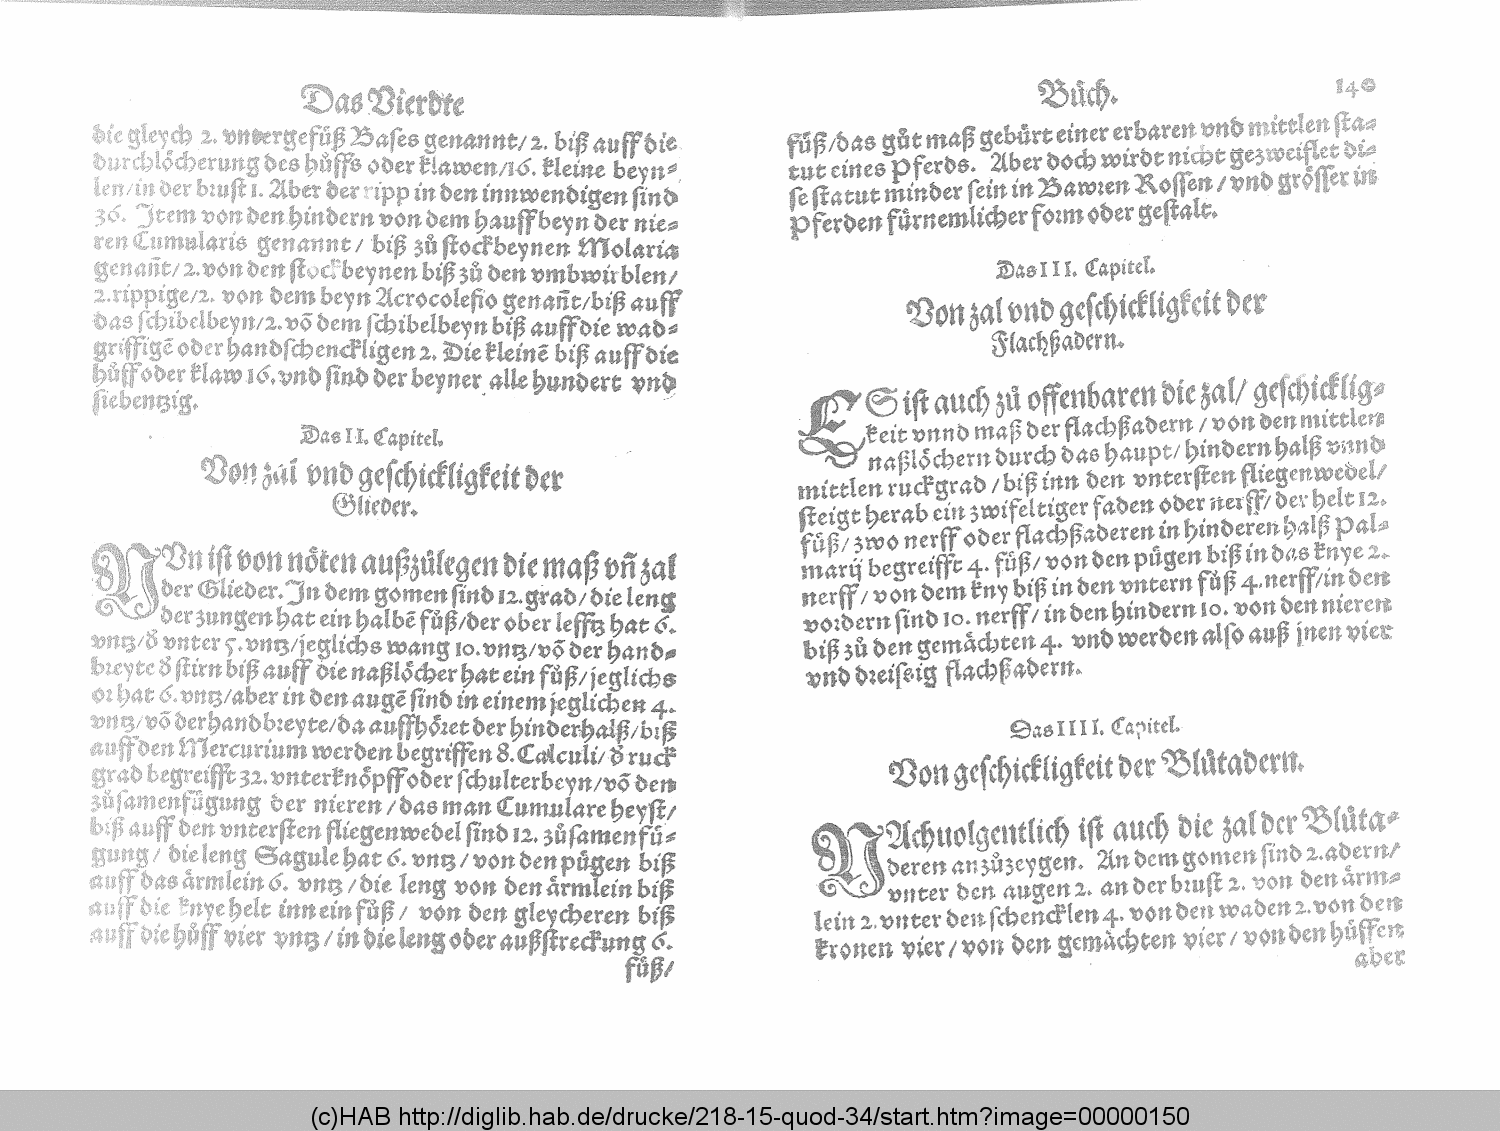 Das Vierdte
die gleych 2. vntergefůß Bases genannt/ 2. biß auff die
durchlöcherung des hůffs oder klawen/16. kleine beyn⸗
len/in der brust 1. Aber der ripp in den innwendigen sind
36. Item von den hindern von dem hauffbeyn der nie⸗
ren Cumularis genannt/ biß zů stockbeynen Molaria
genañt/2.von den stockbeynen biß zů den vmbwirblen/
2.rippige/2. von dem beyn Acrocolefio genañt/biß auff
das schibelbeyn/2.võ dem schibelbeyn biß auff die wad⸗
griffigẽ oder handschenckligen 2. Die kleinẽ biß auff die
hůff oder klaw 16.vnd sind der beyner alle hundert vnd
siebentzig.
Das II. Capitel.
Von zal vnd geschickligkeit der
Glieder.
NVn ist von nöten außzůlegen die maß vñ zal
der Glieder. In dem gomen sind 12. grad/die leng
der zungen hat ein halbẽ fůß/der ober lefftz hat 6.
vntz/ð vnter 5.vntz/jeglichs wang 10.vntz/võ der hand⸗
breyte ð stirn biß auff die naßlöcher hat ein fůß/jeglichs
or hat 6.vntz/aber in den augẽ sind in einem jeglichen 4.
vntz/võ der handbreyte/da auffhöret der hinderhalß/biß
auff den Mercurium werden begriffen 8.Calculi/ð ruck
grad begreifft 32.vnterknöpff oder schulterbeyn/võ den
zůsamenfůgung der nieren/das man Cumulare heyst/
biß auff den vntersten fliegenwedel sind 12. zůsamenfů⸗
gung/ die leng Sagule hat 6. vntz/von den půgen biß
auff das ärmlein 6. vntz/die leng von den ärmlein biß
auff die knye helt inn ein fůß/ von den gleycheren biß
auff die hůff vier vntz/in die leng oder außstreckung 6.
fůß/
Bůch. 140
fůß/das gůt maß gebůrt einer erbaren vnd mittlen sta⸗
tut eines Pferds. Aber doch wirdt nicht gezweiflet di⸗
se statut minder sein in Bawren Rossen/vnd grösser in
Pferden fürnemlicher form oder gestalt.
Das III. Capitel.
Von zal vnd geschickligkeit der
Flachßadern.
ES ist auch zů offenbaren die zal/ geschicklig⸗
keit vnnd maß der flachßadern/von den mittlern
naßlöchern durch das haupt/hindern halß vnnd
mittlen ruckgrad/biß inn den vntersten fliegenwedel/
steigt herab ein zwifeltiger faden oder nerff/der helt 12.
fůß/zwo nerff oder flachßaderen in hinderen halß Pal⸗
marij begreifft 4. fůß/von den půgen biß in das knye 2.
nerff/von dem kny biß in den vntern fůß 4.nerff/in den
vordern sind 10. nerff/in den hindern 10. von den nieren
biß zů den gemächten 4. vnd werden also auß jnen vier
vnd dreissig flachßadern.
Das IIII. Capitel.
Von geschickligkeit der Blůtadern.
NAchuolgentlich ist auch die zal der Blůta⸗
deren anzůzeygen. An dem gomen sind 2.adern/
vnter den augen 2. an der brust 2. von den ärm⸗
lein 2.vnter den schencklen 4. von den waden 2.von den
kronen vier/von den gemächten vier/von den hůffen
aber
(c)HAB http://diglib.hab.de/drucke/218-15-quod-34/start.htm?image=00000150